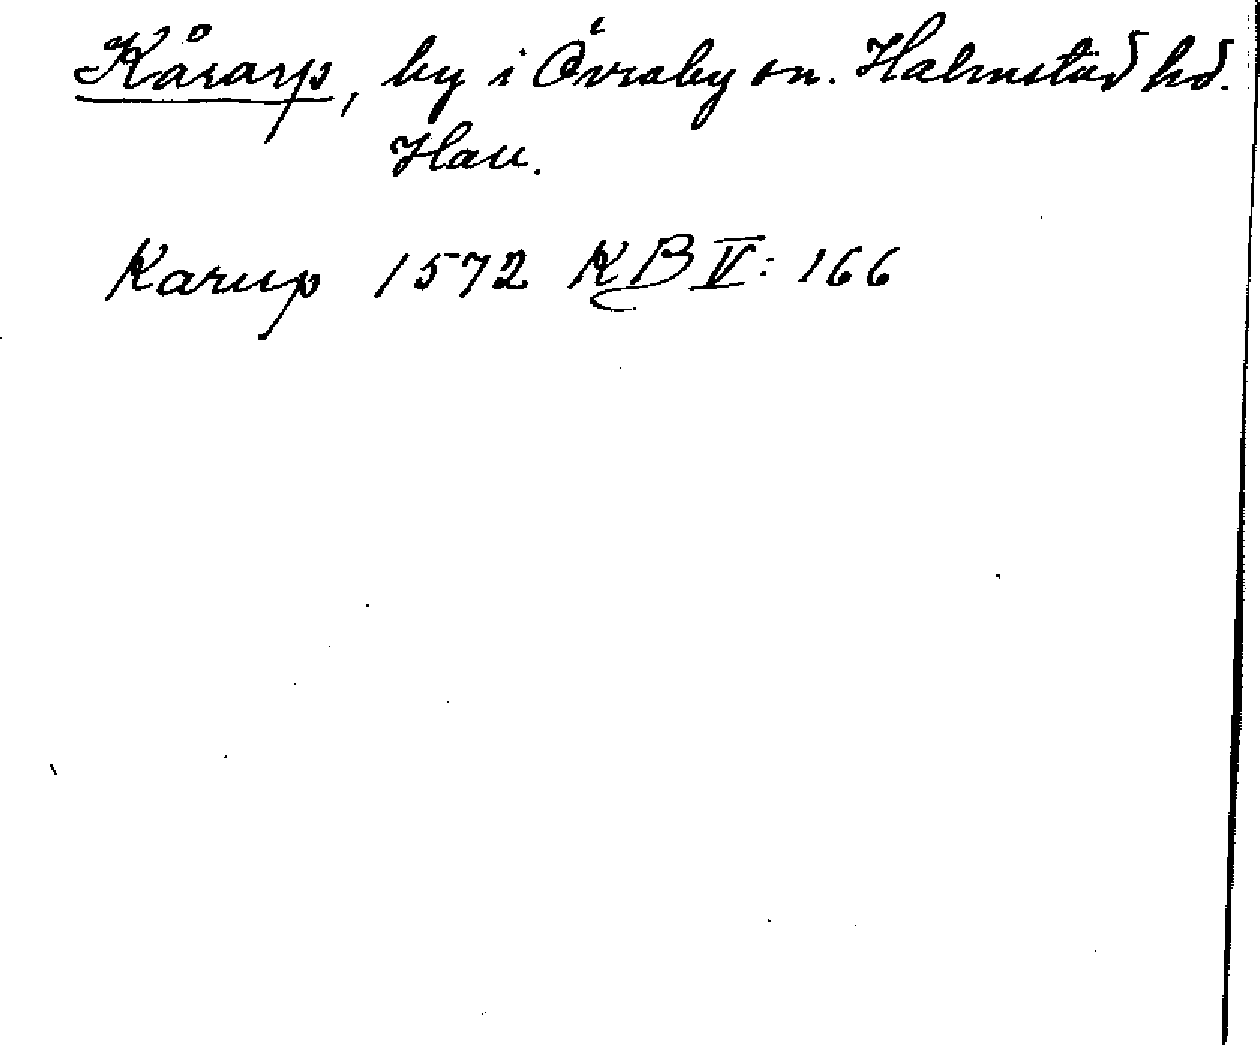 Kårarp, by i Övraby sn. Halmstad hd.
Hall.
Karup 1572 KB V: 166